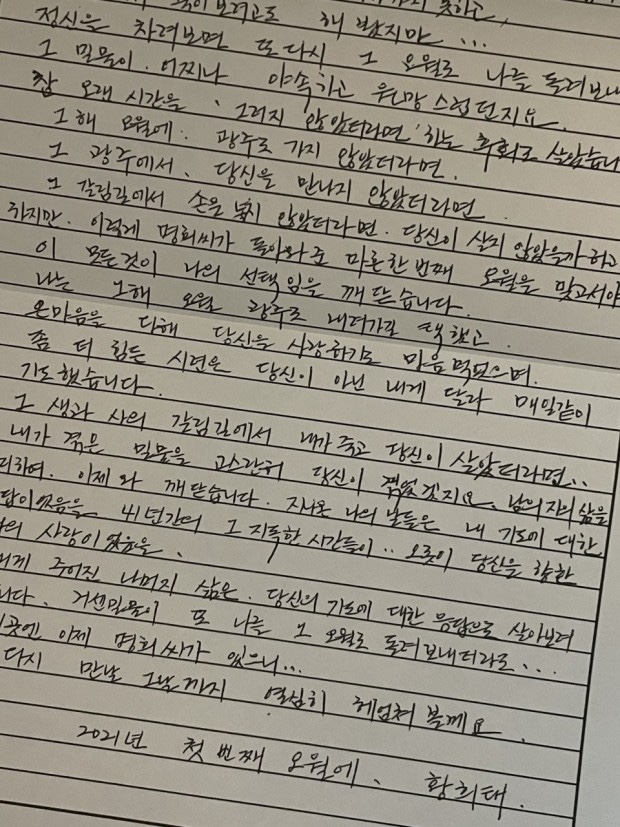 못하고,
해 봤지만...
정신을 차려보면 또다시 그 오월로 나를 돌려보내
그 밀물이. 어찌나 야속하고 원망스럽던지요.
참 오랜 시간을, '그러지 않았더라면' 하는 후회로 살았습니
그해 오월에. 광주로 가지 않았더라면.
그 광주에서, 당신을 만나지 않았더라면.
그 갈림길에서 손을 놓지 않았더라면. 당신이 살지 않았을까하고
하지만. 이렇게 명희씨가 돌아와준 마흔한번째 오월을 맞고서야
이 모든것이 나의 선택임을 깨닫습니다.
나는 그해 오월 광주로 내려가길 택했고.
온마음을 다해 당신을 사랑하기로 마음먹었으며.
좀 더 힘든 시련은 당신이 아닌 내게 달라 매일같이
기도했습니다.
그 생과 사의 갈림길에서 내가 죽고 당신이 살았더라면..
내가 겪은 밀물을 고스란히 당신이 겪었겠지요. 남은자의 삶을
하여. 이제와 깨닫습니다. 지나온 나의 날들은 내 기도에 대한
답이었음을 41년간의 그 지독한 시간들이.. 오롯이 당신을 향한
나의 사랑이었음을.
내게 주어진 나머지 삶은. 당신의 기도에 대한 응답으로 살아보려
니다. 거센밀물이 또 나를 그 오월로 돌려보내더라도....
곳엔 이제 명희씨가 있으니...
다시 만날 그날까지 열심히 헤엄쳐 볼게요.
2021년 첫번째 오월에. 황희태.